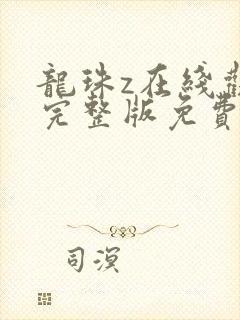 龍珠z在綫
完整版免費
司溟